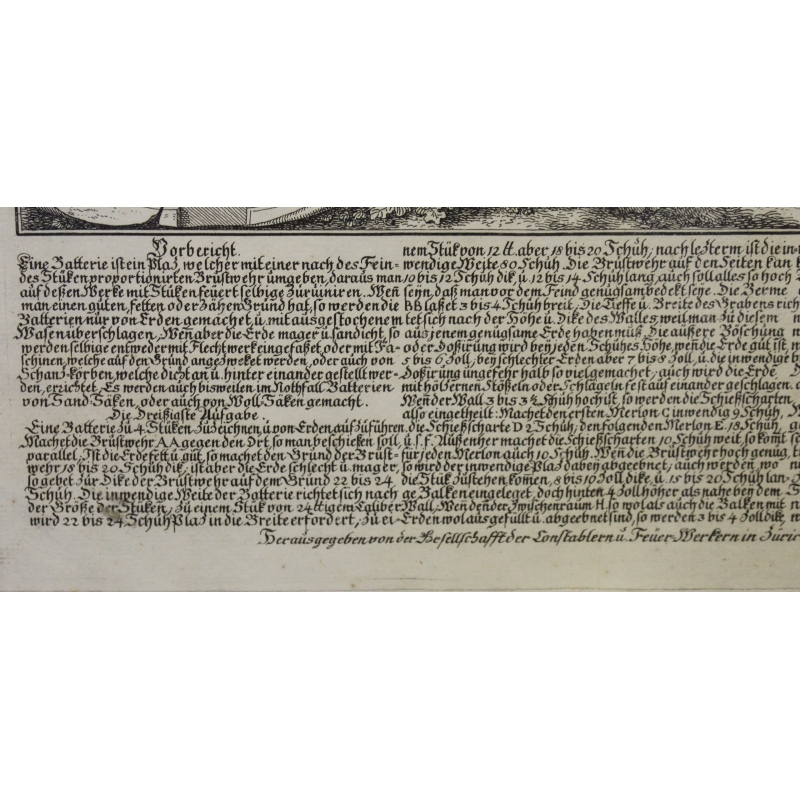 Vorbericht.
Eine Batterie ist ein Plaz, welcher mit einer nach des Fein=
des Stüken proportionirten Brustwehr umgeben, daraus man
auf deßen Werke mit Stüken feuert selbige zu ruiniren. Weñ
man einen guten, fetten oder zähen Grund hat, so werden die
Batterien nur von Erden gemachet, u. mit ausgestochenem
Wasen überschlagen, Weñ aber die Erde mager u. sandicht, so
werden selbige entweder mit Flechtwerk eingefaßet, oder mit Fa=
schinen, welche auf den Grund angezweket werden, oder auch von
Schanz-körben, welche dicht an u. hinter einander gestellt wer=
den, erzichtet, Es werden auch bisweilen im Nothfall Batterien
von Sand-Säken, oder auch von Woll-Säken gemacht.
Die Dreißigste Aufgabe.
Eine Batterie zu 4. Stüken zu zeichnen, u. von Erden aufzuführen.
Machet die Brustwehr A A gegen den Ort, so man beschießen soll,
parallel, Ist die Erde fett u. gut, so machet den Grund der Brust=
wehr 18 bis 20 Schuh dik, ist aber die Erde schlecht u. mager,
so gebet zur Dike der Brustwehr auf dem Grund 22 bis 24
Schuh. Die inwendige Weite der Batterie richtet sich nach
der Größe der Stüken, zu einem Stuk von 24 ttigem Caliber
wird 22 bis 24 Schuh Plaz in die Breite erfordert, zu ei=
nem Stuk von 12 tt. aber 18 bis 20 Schuh, nach lezterm ist die in=
wendige Weite 80 Schuh. Die Brustwehr auf den Seiten kan
10 bis 12 Schuh dik, u. 12 bis 14 Schuh lang, auch soll alles so hoch
seyn, daß man vor dem Feind genugsam bedekt seye. Die Berme
BB laßet 3 bis 4 Schuh breit, Die Tieffe u. Breite des Grabens rich
tet sich nach der Höhe u. Dike des Walles, weil man zu diesem
aus jenem genugsame Erde haben muß. Die außere Böschung
oder Doßirung wird bey jeden Schuhes Höhe, weñ die Erde gut ist,
5 bis 6 Zoll, bey schlechter Erden aber 7 bis 8 Zoll, u. die inwendige
Doßirung ungefehr halb so viel gemachet, auch wird die Erde
mit hölzernen Stößeln oder Schlägeln fest auf einander geschlagen.
Weñ der Wall 3 bis 3½ Schuh hoch ist, so werden die Schießscharten
also eingetheilt: Machet den ersten Merlon C inwendig 9 Schuh,
die Schießscharte D 2 Schuh, den folgenden Merlon E. 18 Schuh,
u. s. f. Außenher machet die Schießscharten 10 Schuh weit, so komt
für jeden Merlon auch 10 Schuh. Weñ die Brustwehr hoch genug,
so wird der inwendige Plaz dabey abgeebnet, auch werden wo
die Stuk zu stehen komen, 8 bis 10 Zoll dike, u. 15 bis 20 Schuh lan=
ge Balken eingeleget, doch hinten 4 Zoll höher als nahe bey dem
Wall, Weñ deñ der Zwischenraum H. so wol als auch die Balken mit
Erden wol ausgefüllt u. abgeebnet sind, so werden 3 bis 4 Zoll dike
Herausgegeben von der Gesellschafft der Constablern u. Feuer-Werkern in Züric